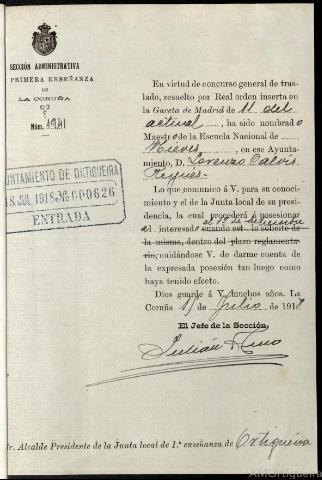 SECCIÓN ADMINISTRATIVA
DE
PRIMERA ENSEÑANZA
DE
LA CORUÑA
Núm. 1941
AYUNTAMIENTO DE ORTIGUEIRA
18 JUL 1918 № 000626
ENTRADA
En virtud de concurso general de tras-
lado, resuelto por Real orden inserta en
la Gaceta de Madrid de 11 del
actual, ha sido nombrado
Maestro de la Escuela Nacional de
Nieves, en ese Ayunta-
miento, D. Lorenzo Calvis
Lo que comunico á V. para su conoci-
miento y el de la Junta local de su presi-
dencia, la cual procederá á posesionar
el 1º de setiembre
al interesado cuando este lo solicite de
la misma, dentro del plazo reglamenta-
rio, cuidándose V. de darme cuenta de
la expresada posesión tan luego como
haya tenido efecto.
Dios guarde á V. muchos años. La
Coruña 15 Julio de 1918
El Jefe de la Sección,
Julián
Sr. Alcalde Presidente de la Junta local de 1.ª enseñanza de Ortigueira
AMOrtigueira